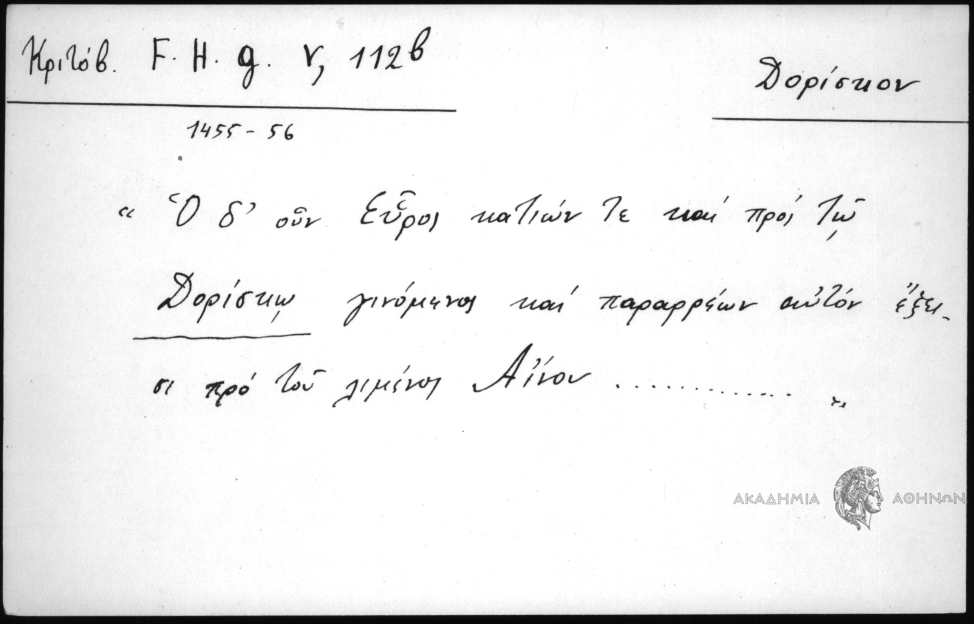 Κριτόβ. F. H. g. V, 112β
Δορίσκον
1455-56
“ Ὁ δ' οὖν Εὖρος κατιών τε καί πρός τῷ
Δορίσκῳ γινόμενος καί παραρρέων αὐτόν ἔξει-
σι πρό τοῦ λιμένος Αἴνου .............. „
ΑΚΑΔΗΜΙΑ ΑΘΗΝΩΝ